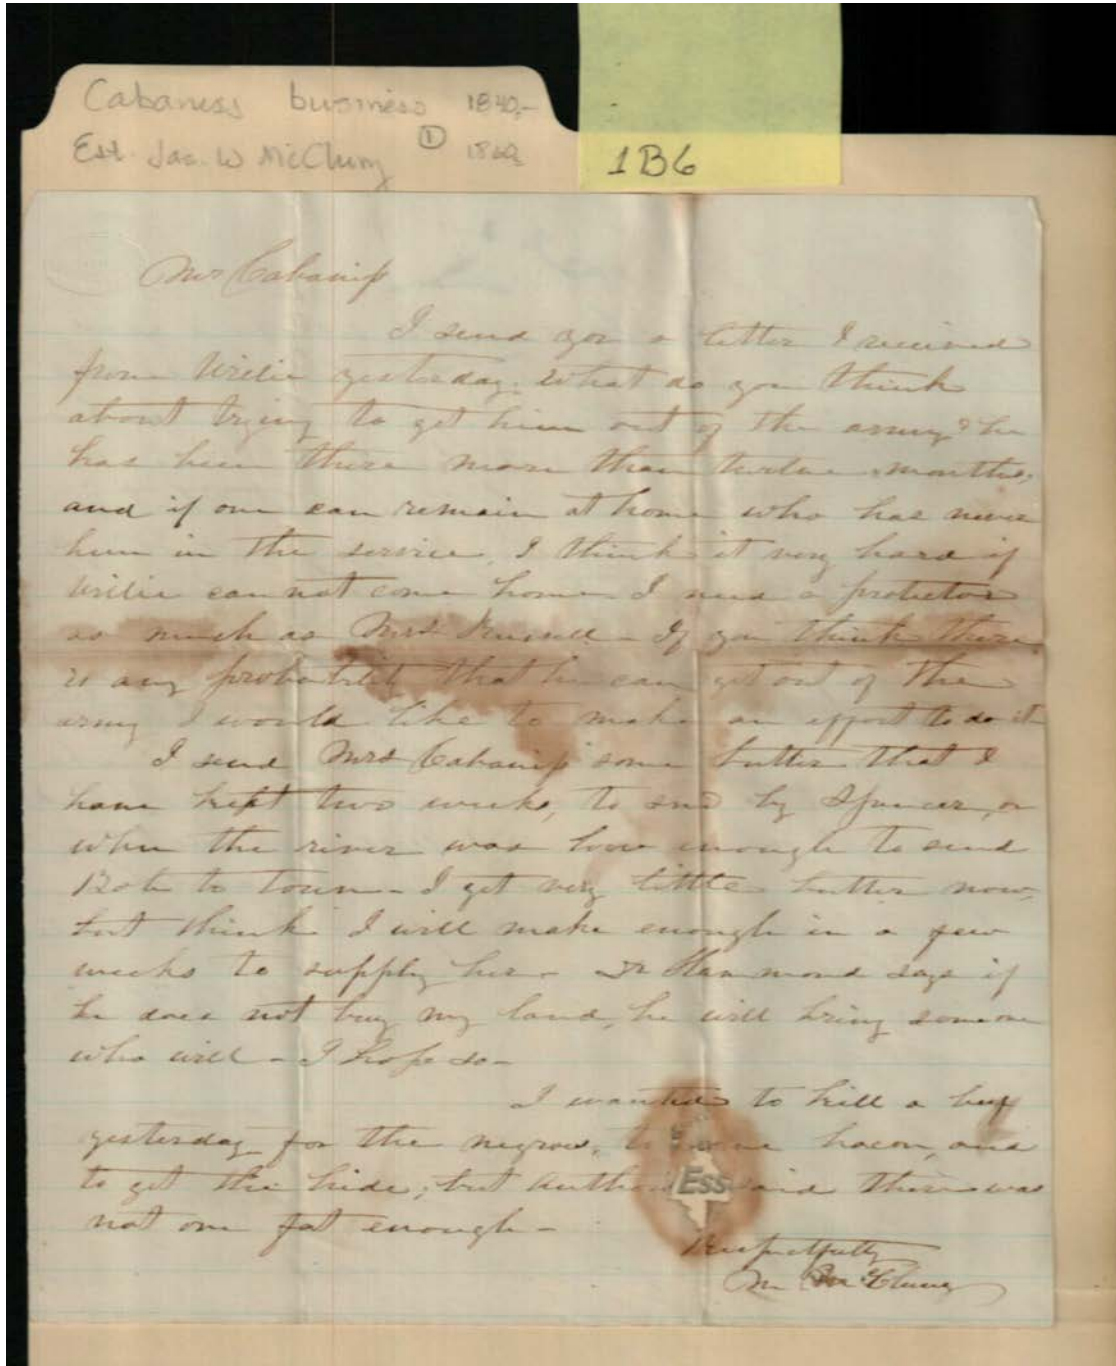 Cabaness business 1840-
Est. Jas. W McClung ① 1860
1B6
Mr Cabaniss
I send you a letter I received
from Willie yesterday. What do you think
about trying to get him out of the army? he
has been there more than twelve months,
and if one can remain at home who has never
been in the service, I think it very hard if
Willie can not come home I need a protector
as much as Mrs Russell - If you think there
is any probability that he can get out of the
army I would like to make an effort to do it
I send Mrs Cabaniss some butter that I
have kept two weeks, to send by Spencer, or
when the river was low enough to send
Bob to town - I get very little butter now,
but think I will make enough in a few
weeks to supply her - Dr Hammond says if
he does not buy my land, he will bring some one
who will - I hope so -
I wanted to kill a beef
yesterday for the negroes, to bacon, and
to get the hide; but said there was
Ess
not one fat enough -
Respectfully
M McClung